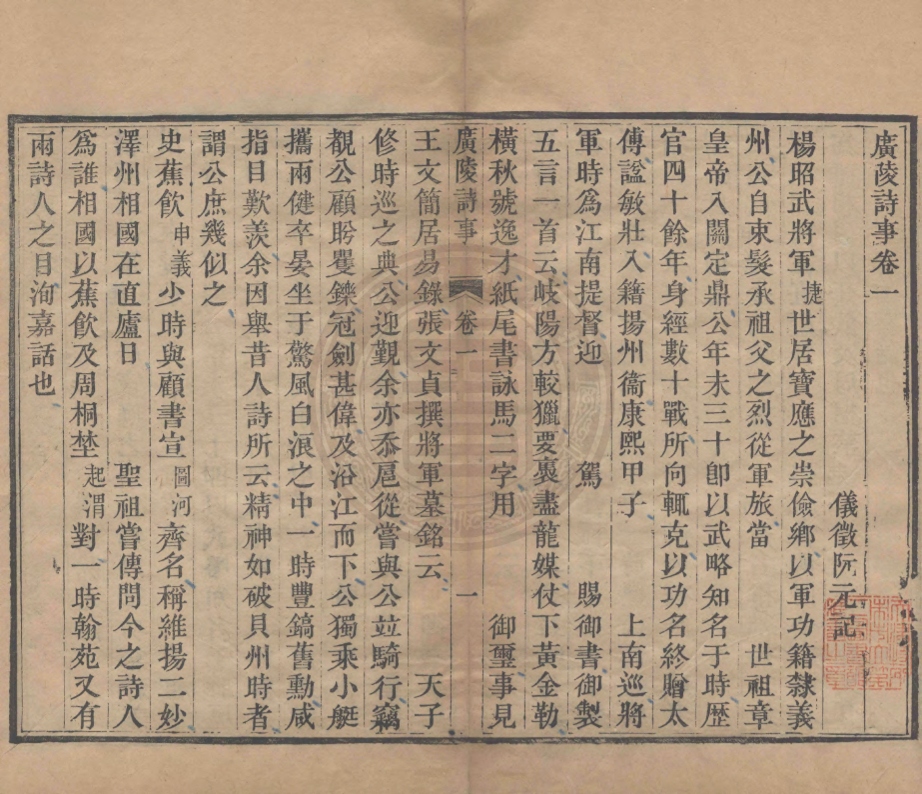 廣陵詩事卷一
儀徵阮元記
楊昭武將軍捷世居寶應之崇儉鄉以軍功籍隸義
州公自束髮承祖父之烈從軍旅當 世祖章
皇帝入關定鼎公年未三十卽以武略知名于時歷
官四十餘年身經數十戰所向輒克以功名終贈太
傅諡敏壯入籍揚州衞康熙甲子 上南巡將
軍時爲江南提督迎 駕 賜御書御製
五言一首云岐陽方較獵要褭盡龍媒仗下黃金勒
橫秋號逸才紙尾書詠馬二字用 御璽事見
廣陵詩事 卷一 一
王文簡居易錄張文貞撰將軍墓銘云 天子
修時巡之典公迎覲余亦忝扈從嘗與公竝騎行竊
觀公顧盻矍鑠冠劍甚偉及沿江而下公獨乘小艇
攜兩健卒晏坐于驚風白浪之中一時豐鎬舊勳咸
指目歎羨余因舉昔人詩所云精神如破貝州時者
謂公庶幾似之
史蕉飮申義少時與顧書宣圖河齊名稱維揚二妙
澤州相國在直廬日 聖祖嘗傳問今之詩人
爲誰相國以蕉飮及周桐埜起渭對一時翰苑又有
兩詩人之目洵嘉話也